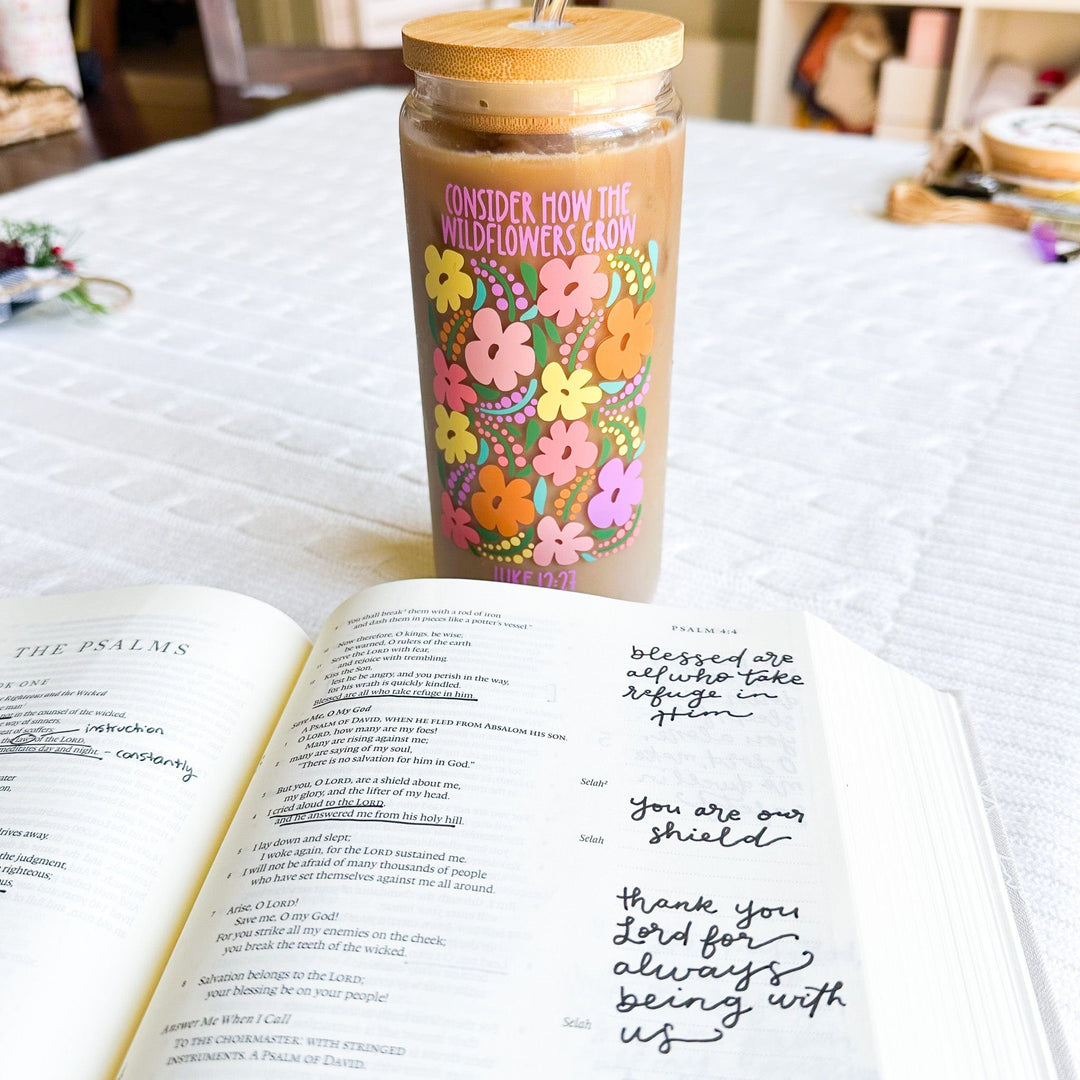 CONSIDER HOW THE
WILDFLOWERS GROW
LUKE 12:27
THE PSALMS
OK ONE
Righteous and the Wicked
he man!
not in the counsel of the wicked,
e way of sinners,
eat of scoffers;
the law of the LORD,
instruction
meditates day and night.
- constantly
ater
drives away.
the judgment,
e righteous;
us,
PSALM 4:4
You shall break² them with a rod of iron
and dash them in pieces like a potter's vessel."
10 Now therefore, O kings, be wise;
be warned, O rulers of the earth.
11 Serve the LORD with fear,
and rejoice with trembling.
12 Kiss the Son,
lest he be angry, and you perish in the way,
for his wrath is quickly kindled.
Blessed are all who take refuge in him.
Save Me, O My God
A PSALM OF DAVID, WHEN HE FLED FROM ABSALOM HIS SON.
1 O LORD, how many are my foes!
Many are rising against me;
2 many are saying of my soul,
"There is no salvation for him in God."
Selah²
3 But you, O LORD, are a shield about me,
my glory, and the lifter of my head.
4 I cried aloud to the LORD,
and he answered me from his holy hill.
Selah
5 I lay down and slept;
I woke again, for the LORD sustained me.
6 I will not be afraid of many thousands of people
who have set themselves against me all around.
7 Arise, O LORD!
Save me, O my God!
For you strike all my enemies on the cheek;
you break the teeth of the wicked.
8 Salvation belongs to the LORD;
your blessing be on your people!
Selah
Answer Me When I Call
TO THE CHOIRMASTER: WITH STRINGED
INSTRUMENTS. A PSALM OF DAVID.
blessed are
all who take
refuge in
Him
you are our
shield
thank you
Lord for
always
being with
us